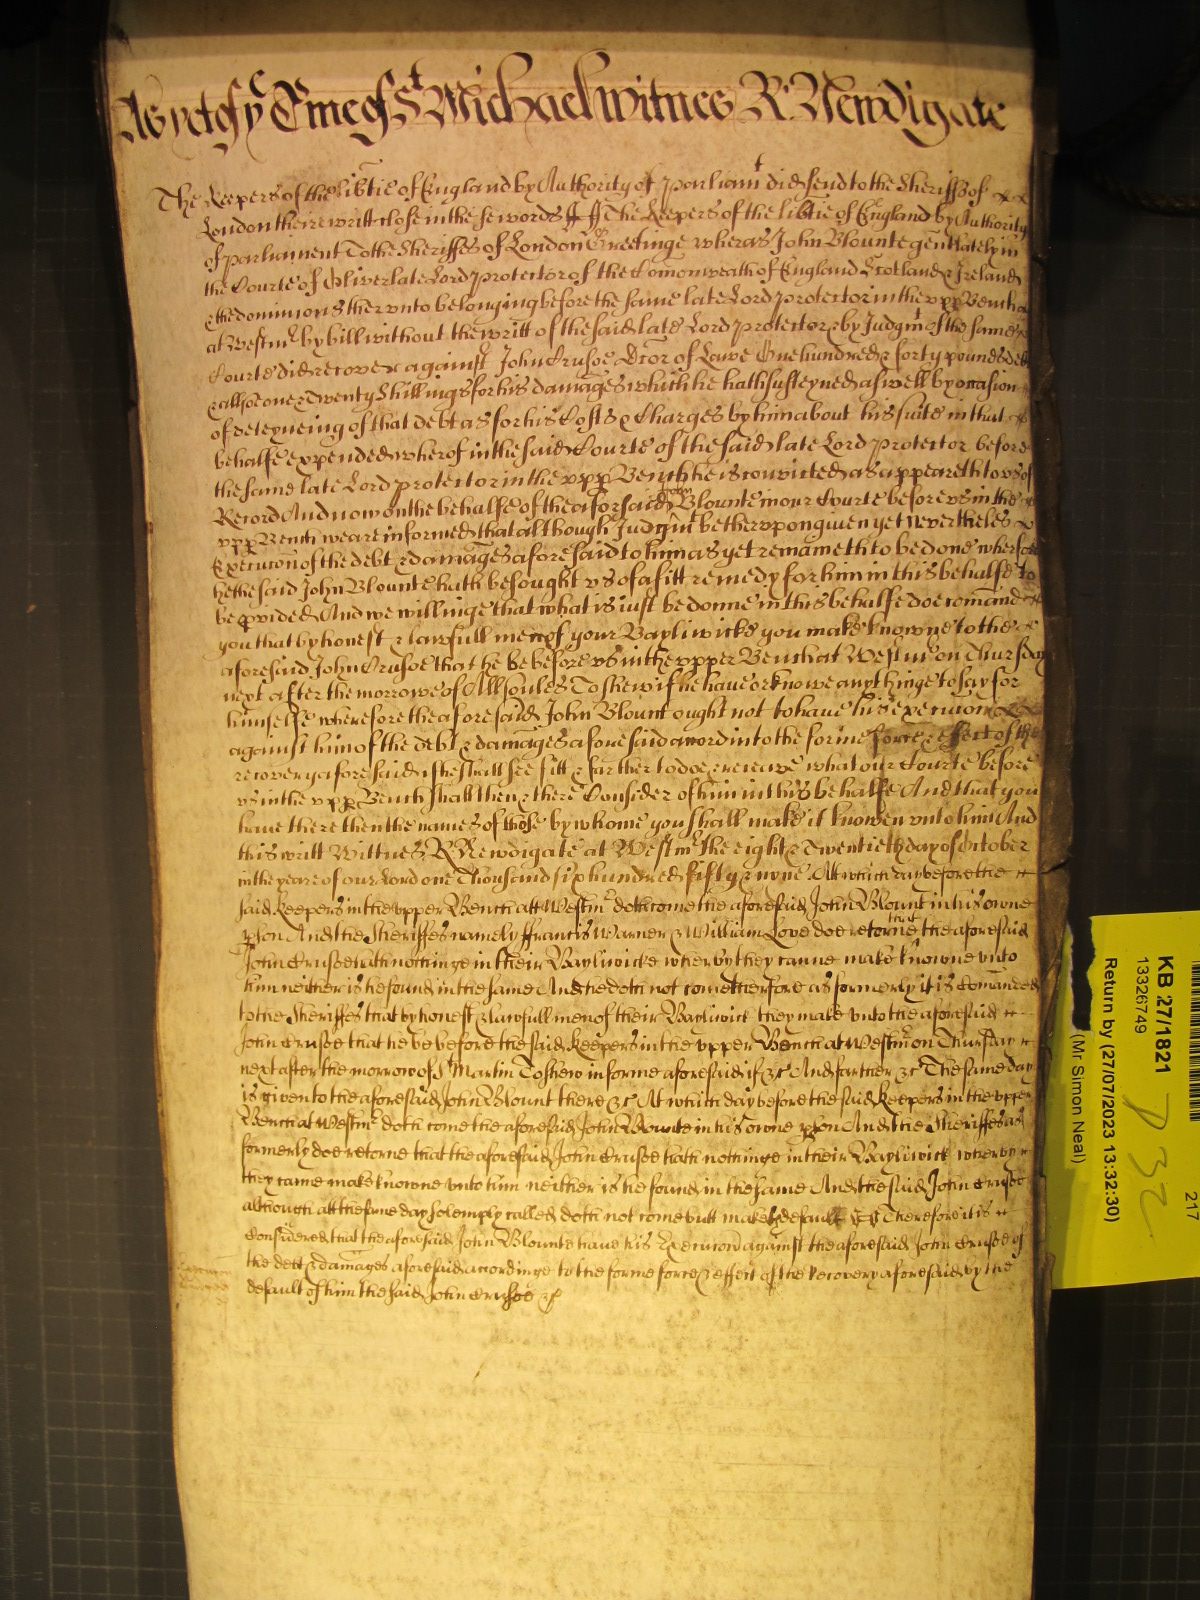 As yet of yᵉ Tˡme of Sᵗ Michael witnes R: Newdigate
The Keepers of the libtie of England by Authority of Parliamᵗ did send to the Sheriffs of
London their writt close in these words ss ss The Keepers of the libtie of England by Authority
of parliament To the Sheriffes of London Greetinge wheras John Blounte gent lately in
the Courte of Oliver late Lord protector of the Comonweath of England Scotland & Ireland
& the dominions ther unto belonging before the same late Lord protector in the upp Bench
at Westmʳ by bill without the writt of the said late Lord Protector & by Judgmᵗ of the same
Courte did recover against John Crusoe Dcor of Lawe One hundred & forty pounds debt
& allsoe one & Twenty Shillings for his damages which he hath susteyned aswell by occasion
of deteyneing of that debt as for his Costs & Charges by him about his suite in that
behalfe expended wherof in the said Courte of the said late Lord Protector before
the same late Lord protector in the upp Bench he is convicted as appeareth to us of
Record And now on the behalfe of the aforsaid John Blounte in our Courte before us in the
upp Bench we are informed that although Judgmᵗ be therupon given yet nevertheles
Execution of the debt & damages aforesaid to him as yet remaineth to be done wherfore
he the said John Blounte hath besought us of a fitt remedy for him in this behalfe to
be pvided And we willinge that what is iust be donne in this behalfe doe comand
you that by honest & lawfull men of your Bayliwicke you make knowne to the
aforesaid John Crusoe that he be before us in the upper Bench at Westmʳ on Thursday
next after the morrowe of All Soules To shew if he have or knowe any thinge to say for
himselfe wherefore the aforesaid John Blount ought not to have his execucion
against him of the debt & damages aforesaid accord into the forme force & effect of the
recovery aforesaid if he shall see fitt & farther to doe & receave what our Courte before
us in the upp Bench shall then & there Consider of him in this behalfe And that you
have there then the names of those by whome you shall make it knowen unto him And
this writt Wittnes R Newdigate at Westmʳ the eight & Twentieth day of October
in the yeare of our Lord one Thousand six hundred fifty & nyne At which day before the
said Keepers in the upper Bench att Westmʳ doth come the aforesaid John Blount in his owne
pson And the Sheriffes namely ffrancis Warner & William Love doe retorne that the aforesaid
John Crusoe hath nothinge in their Bayliwicke wherby they canne make knowne unto
him neither is he found in the same And he doth not come therfore as formerly it is Comanded
to the Sheriffes that by honest & lawfull men of their Bayliwick they make unto the aforesaid
John Crusoe that he be before the said Keepers in the upper Bench at Westmʳ on Thursday
next after the morrow of Sᵗ Martin To shew in forme aforesaid if &c And farther &c The same day
is given to the aforesaid John Blount there &c At which day before the said Keepers in the upper
Bench at Westmʳ doth come the aforesaid John Blounte in his owne pson And the Sheriffes as
formerly doe retorne that the aforesaid John Crusoe hath nothinge in their Bayliwick wherby
they canne make knowne unto him neither is he found in the same And the said John Crusoe
although att the same day solemply called doth not come butt maketh default Therefore it is
Considered that the aforesaid John Blounte have his Execucion against the aforesaid John Crusoe of
the debt & damages aforesaid accordinge to the forme force & effect of the Recovery aforesaid by the
default of him the said John Crusoe &c
KB 27/1821
13326749
Return by (27/07/2023 13:32:30)
(Mr Simon Neal)
217